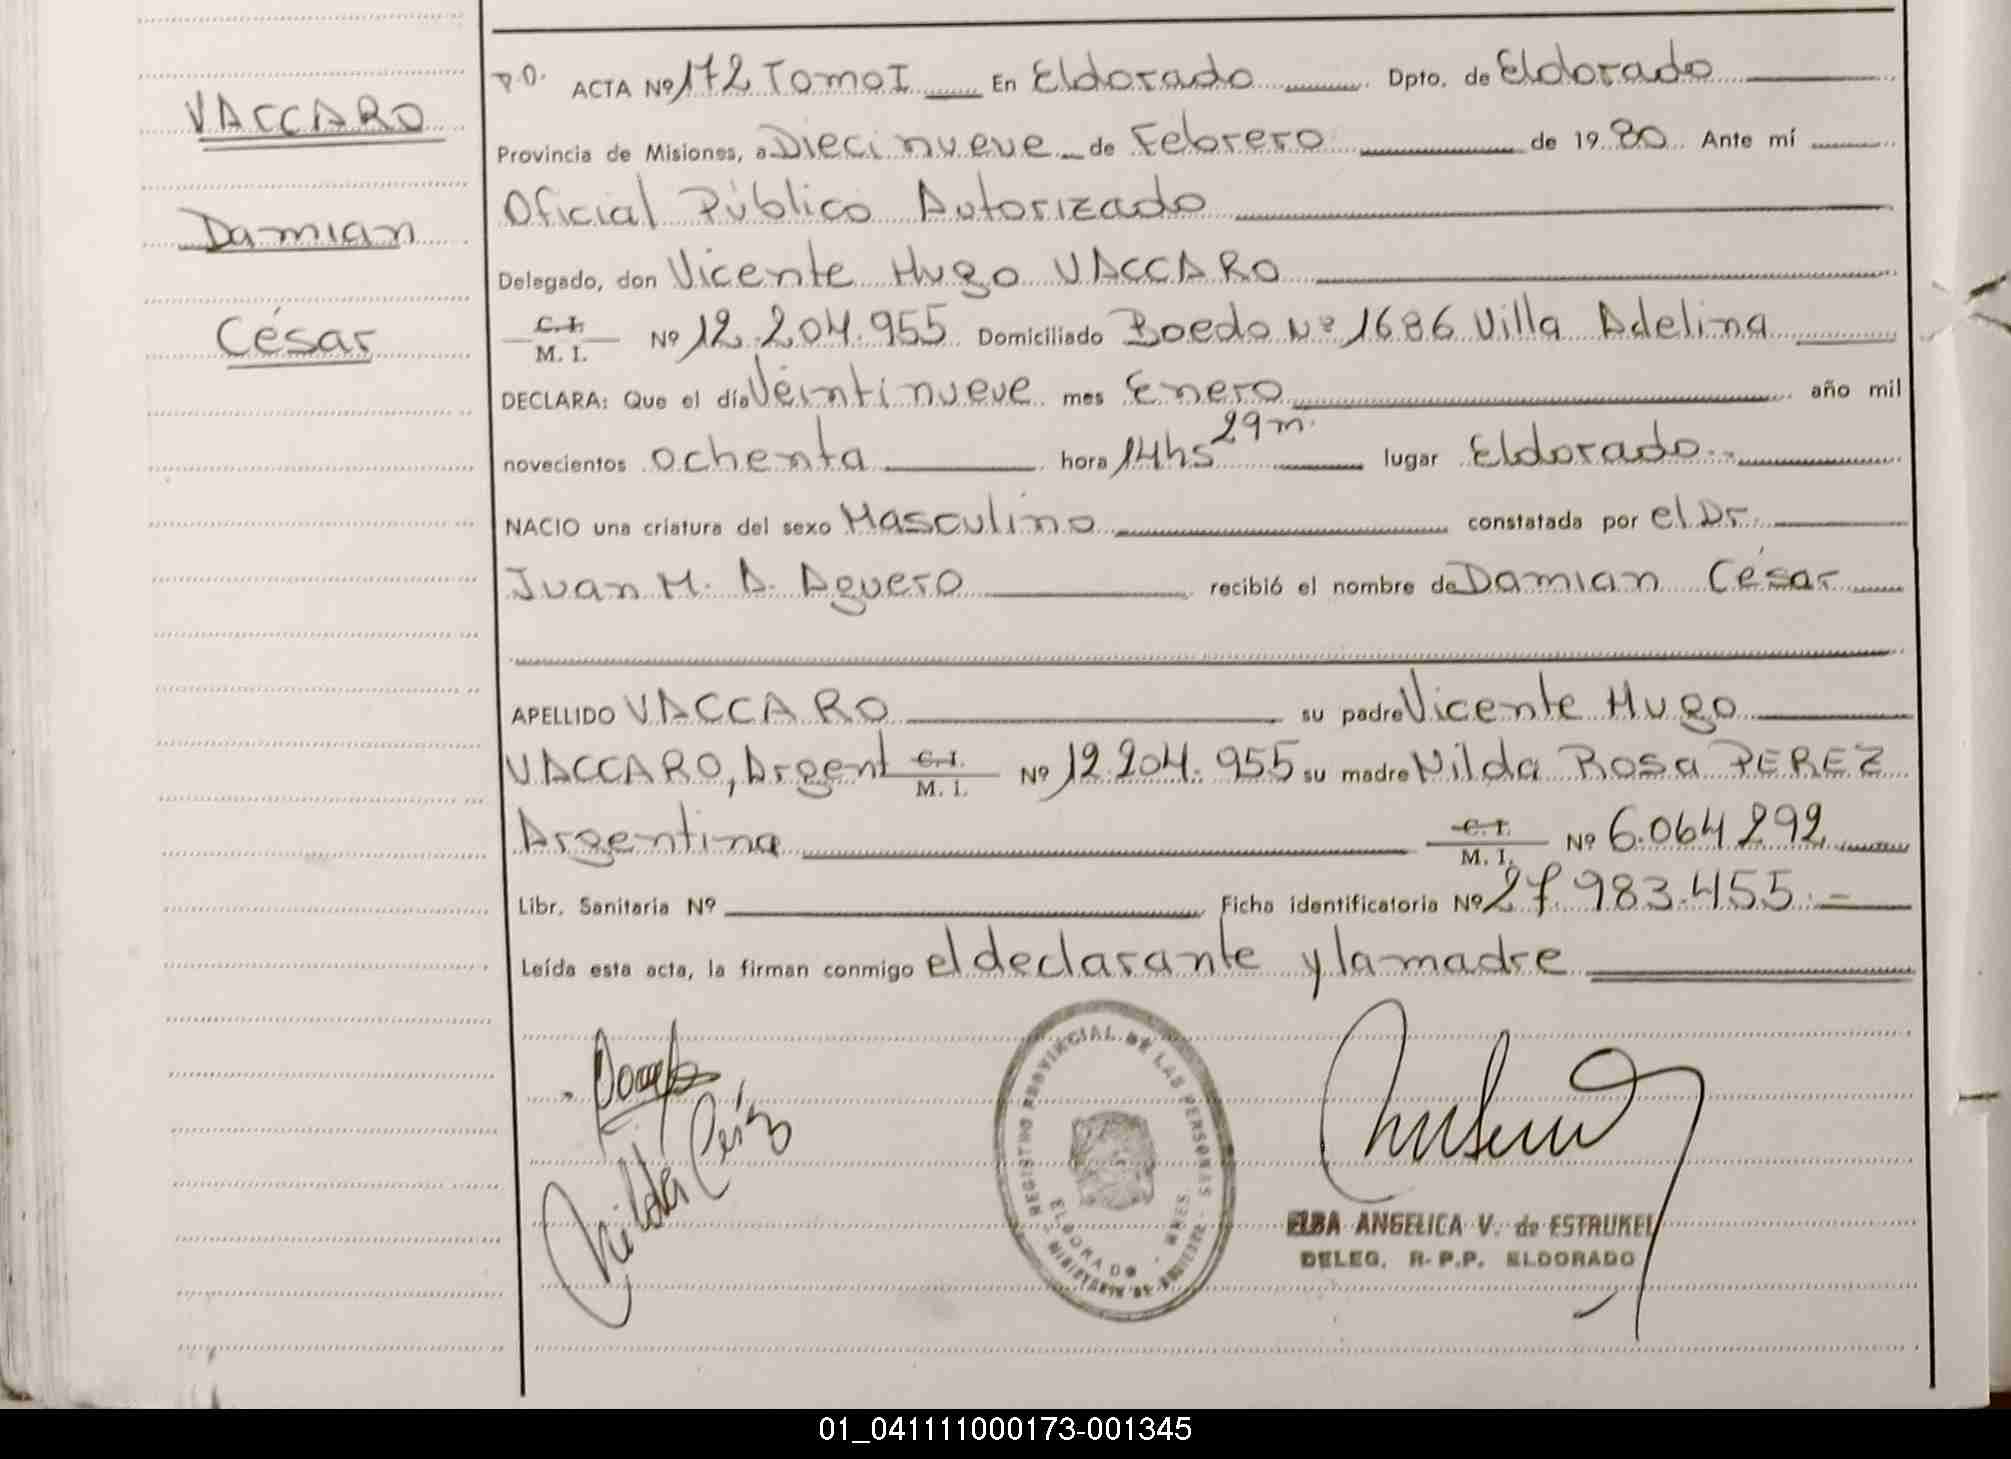 VACCARO
Damian
César
P.O. ACTA Nº 172 Tomo I En Eldorado Dpto. de Eldorado
Provincia de Misiones, a Diecinueve de Febrero de 1980 Ante mí
Oficial Público Autorizado
Delegado, don Vicente Hugo VACCARO
C.I. M. I. Nº 12.204.955 Domiciliado Boedo Nº 1686 Villa Adelina
DECLARA: Que el día Veintinueve mes Enero año mil
novecientos ochenta hora 14hs 29m. lugar Eldorado
NACIO una criatura del sexo Masculino constatada por el Dr.
Juan M. A. Aguero recibió el nombre de Damian César
APELLIDO VACCARO su padre Vicente Hugo
VACCARO, Argent C.I. M. I. Nº 12.204.955 su madre Nilda Rosa PEREZ
Argentina C.I. M. I. Nº 6.064.292
Libr. Sanitaria Nº Ficha identificatoria Nº 27.983.455.-
Leída esta acta, la firman conmigo el declarante y la madre
Nilda Pérez
REGISTRO PROVINCIAL DE LAS PERSONAS
ELDORADO - MNES.
MINISTERIO DE
ELBA ANGELICA V. de ESTRUKEL
DELEG. R.P.P. ELDORADO
01_041111000173-001345